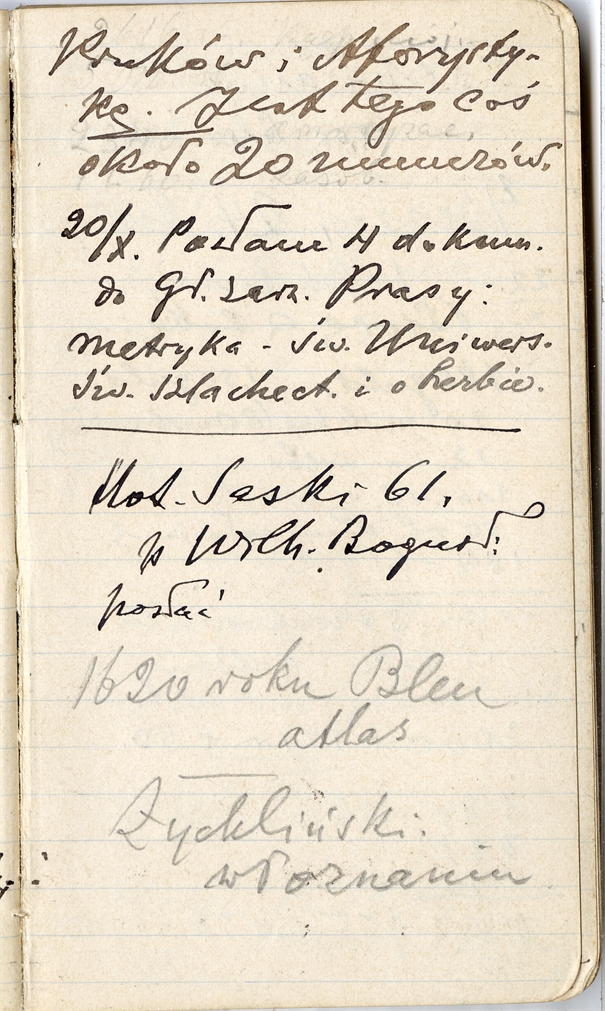 Kruków i Aforysty-
kę. Jest tego coś
około 20 numerów.
20/X. Posłane 4 dokum.
do Gł. zarz. Prasy:
metryka - św. Uniwers.
św. szlachect. i o herbie.
Hot. Saski 61,
p Wilh. Bogusł:
posłać
1620 roku Bleu
atlas
Żychliński.
w Poznaniu